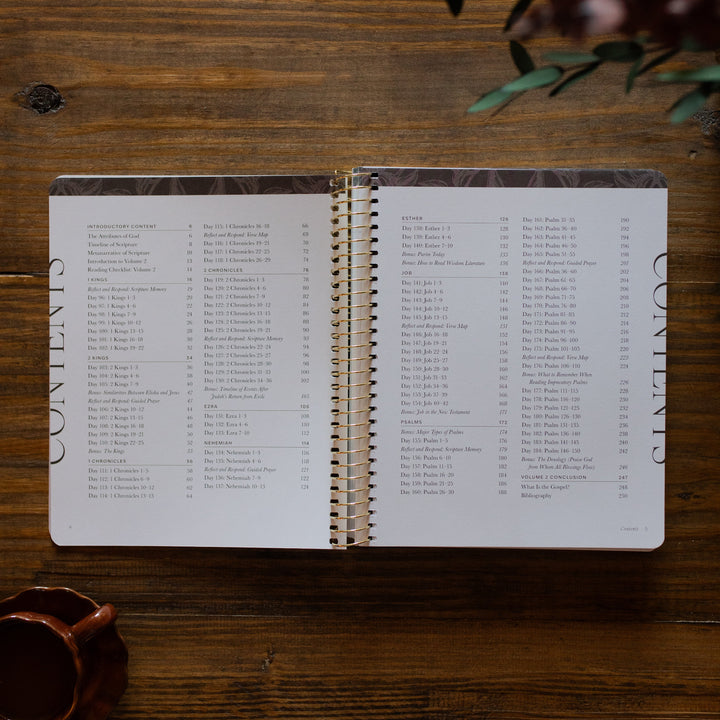 CONTENTS
INTRODUCTORY CONTENT 6
The Attributes of God 6
Timeline of Scripture 8
Metanarrative of Scripture 10
Introduction to Volume 2 13
Reading Checklist: Volume 2 14
1 KINGS 16
Reflect and Respond: Scripture Memory 19
Day 96: 1 Kings 1–3 20
Day 97: 1 Kings 4–6 22
Day 98: 1 Kings 7–9 24
Day 99: 1 Kings 10–12 26
Day 100: 1 Kings 13–15 28
Day 101: 1 Kings 16–18 30
Day 102: 1 Kings 19–22 32
2 KINGS 34
Day 103: 2 Kings 1–3 36
Day 104: 2 Kings 4–6 38
Day 105: 2 Kings 7–9 40
Bonus: Similarities Between Elisha and Jesus 42
Reflect and Respond: Guided Prayer 43
Day 106: 2 Kings 10–12 44
Day 107: 2 Kings 13–15 46
Day 108: 2 Kings 16–18 48
Day 109: 2 Kings 19–21 50
Day 110: 2 Kings 22–25 52
Bonus: The Kings 55
1 CHRONICLES 56
Day 111: 1 Chronicles 1–5 58
Day 112: 1 Chronicles 6–9 60
Day 113: 1 Chronicles 10–12 62
Day 114: 1 Chronicles 13–15 64
Day 115: 1 Chronicles 16–18 66
Reflect and Respond: Verse Map 69
Day 116: 1 Chronicles 19–21 70
Day 117: 1 Chronicles 22–25 72
Day 118: 1 Chronicles 26–29 74
2 CHRONICLES 76
Day 119: 2 Chronicles 1–3 78
Day 120: 2 Chronicles 4–6 80
Day 121: 2 Chronicles 7–9 82
Day 122: 2 Chronicles 10–12 84
Day 123: 2 Chronicles 13–15 86
Day 124: 2 Chronicles 16–18 88
Day 125: 2 Chronicles 19–21 90
Reflect and Respond: Scripture Memory 93
Day 126: 2 Chronicles 22–24 94
Day 127: 2 Chronicles 25–27 96
Day 128: 2 Chronicles 28–30 98
Day 129: 2 Chronicles 31–33 100
Day 130: 2 Chronicles 34–36 102
Bonus: Timeline of Events After
Judah's Return from Exile 105
EZRA 106
Day 131: Ezra 1–3 108
Day 132: Ezra 4–6 110
Day 133: Ezra 7–10 112
NEHEMIAH 114
Day 134: Nehemiah 1–3 116
Day 135: Nehemiah 4–6 118
Reflect and Respond: Guided Prayer 121
Day 136: Nehemiah 7–9 122
Day 137: Nehemiah 10–13 124
4
ESTHER 126
Day 138: Esther 1–3 128
Day 139: Esther 4–6 130
Day 140: Esther 7–10 132
Bonus: Purim Today 135
Bonus: How to Read Wisdom Literature 136
JOB 138
Day 141: Job 1–3 140
Day 142: Job 4–6 142
Day 143: Job 7–9 144
Day 144: Job 10–12 146
Day 145: Job 13–15 148
Reflect and Respond: Verse Map 151
Day 146: Job 16–18 152
Day 147: Job 19–21 154
Day 148: Job 22–24 156
Day 149: Job 25–27 158
Day 150: Job 28–30 160
Day 151: Job 31–33 162
Day 152: Job 34–36 164
Day 153: Job 37–39 166
Day 154: Job 40–42 168
Bonus: Job in the New Testament 171
PSALMS 172
Bonus: Major Types of Psalms 174
Day 155: Psalm 1–5 176
Reflect and Respond: Scripture Memory 179
Day 156: Psalm 6–10 180
Day 157: Psalm 11–15 182
Day 158: Psalm 16–20 184
Day 159: Psalm 21–25 186
Day 160: Psalm 26–30 188
Day 161: Psalm 31–35 190
Day 162: Psalm 36–40 192
Day 163: Psalm 41–45 194
Day 164: Psalm 46–50 196
Day 165: Psalm 51–55 198
Reflect and Respond: Guided Prayer 201
Day 166: Psalm 56–60 202
Day 167: Psalm 61–65 204
Day 168: Psalm 66–70 206
Day 169: Psalm 71–75 208
Day 170: Psalm 76–80 210
Day 171: Psalm 81–85 212
Day 172: Psalm 86–90 214
Day 173: Psalm 91–95 216
Day 174: Psalm 96–100 218
Day 175: Psalm 101–105 220
Reflect and Respond: Verse Map 223
Day 176: Psalm 106–110 224
Bonus: What to Remember When
Reading Imprecatory Psalms 226
Day 177: Psalm 111–115 228
Day 178: Psalm 116–120 230
Day 179: Psalm 121–125 232
Day 180: Psalm 126–130 234
Day 181: Psalm 131–135 236
Day 182: Psalm 136–140 238
Day 183: Psalm 141–145 240
Day 184: Psalm 146–150 244
Bonus: The Doxology: Praise God
from Whom All Blessings Flow 246
VOLUME 2 CONCLUSION 247
What Is the Gospel? 248
Bibliography 250
CONTENTS
Contents 5